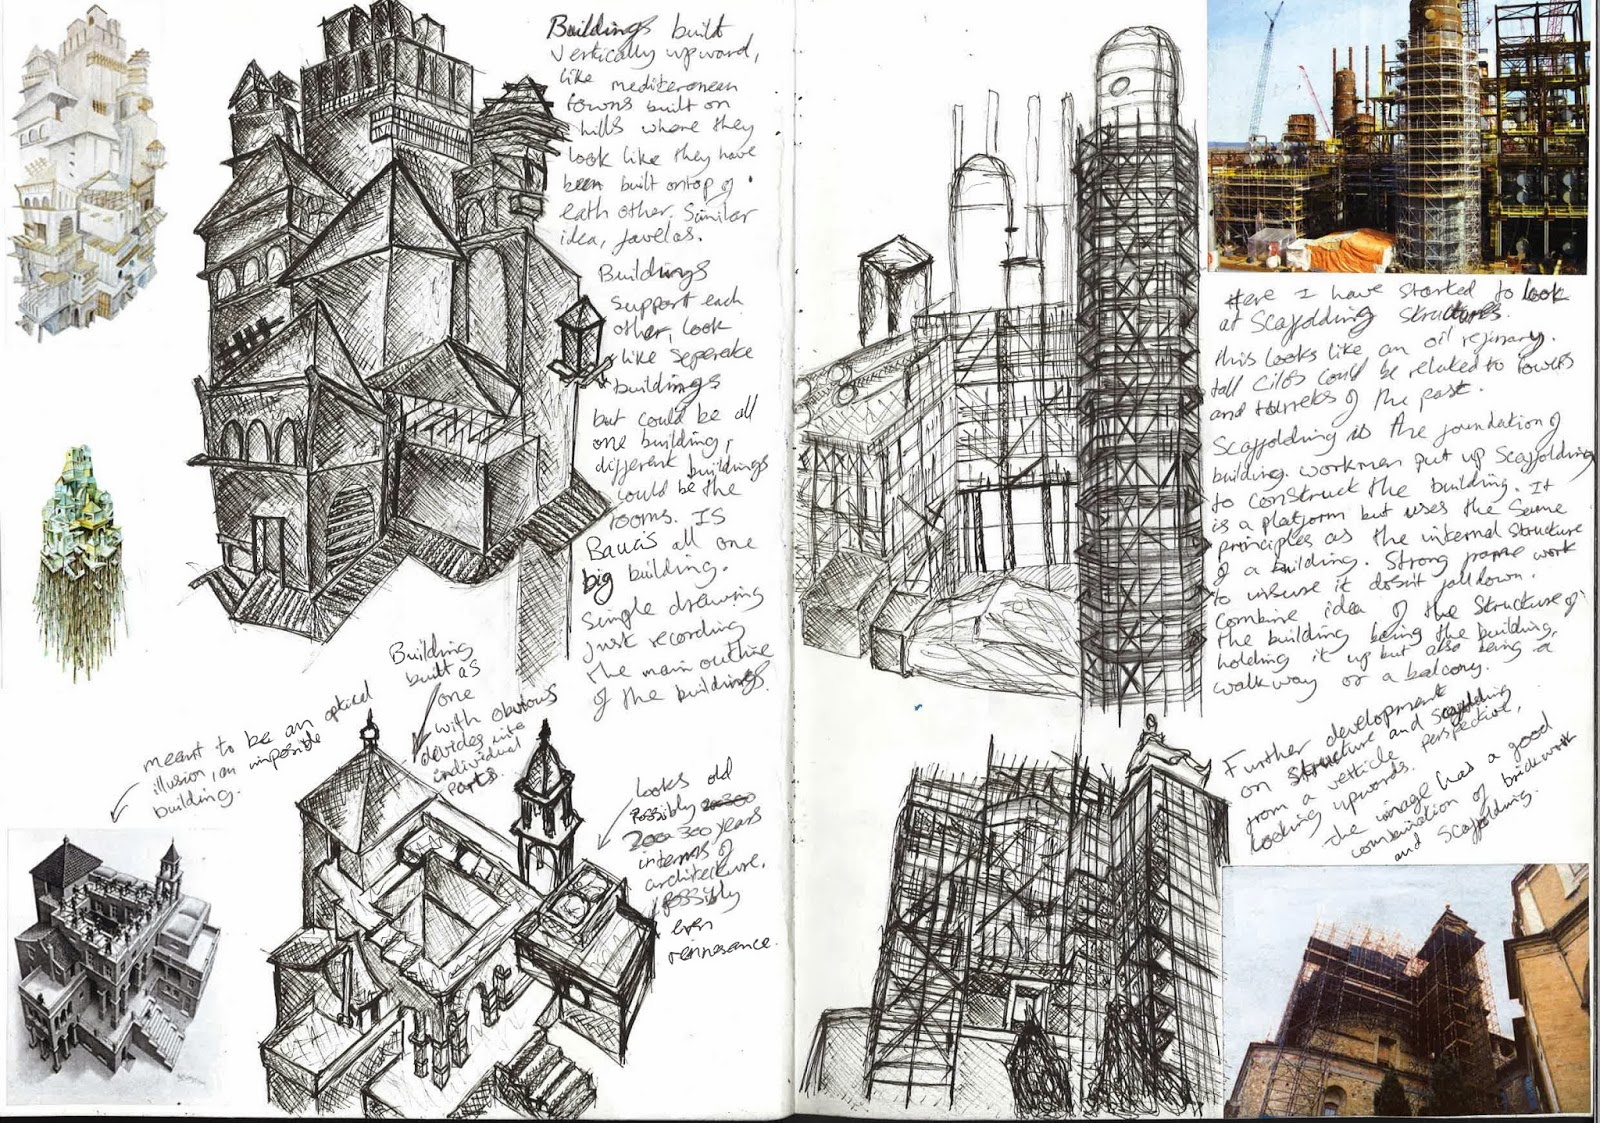 Buildings built
vertically upward,
like mediterenean
towns built on
hills where they
look like they have
been built ontop of
eath other. Similar
idea, favelas.
Buildings
support each
other, look
like seperate
buildings
but could be all
one building,
different buildings
could be the
rooms. IS
Baucis all one
big building.
Simple drawing
just recording
the main outline
of the buildings.
Building
built as
one
with obvious
devides into
individual
parts.
meant to be an optical
illusion, an impossible
building.
looks old
possibly
300 years
interms of
architecture.
possibly
even
rennesance.
Here I have started to look
at scaffolding structures.
this looks like an oil refinary.
tall cilos could be related to towers
and turrets of the past.
Scaffolding is the foundation of
building. workmen put up scaffolding
to construct the building. It
is a platform but uses the same
principles as the internal structure
of a building. Strong frame work
to insure it doesnt fall down.
Combine idea of the structure of
the building being the building,
holding it up but also being a
walkway or a balcony.
Further development
on structure and scaffolding
from a verticle perspective,
looking upwards.
the image has a good
combination of brickwork
and scaffolding.